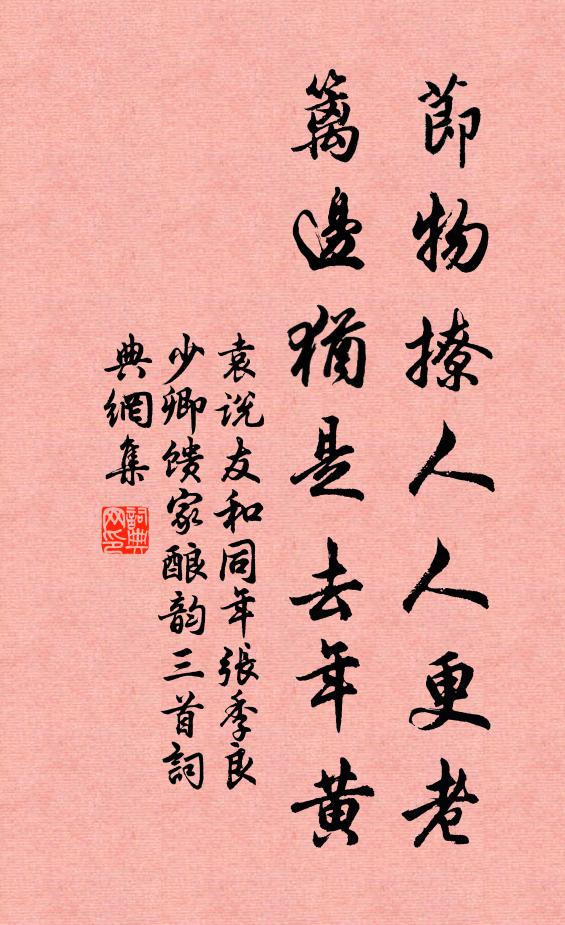 節物撩人人更老
籬邊猶是去年黃
袁说友和同年張季良
少卿馈家酿韵三首詞
典網集
詞典
网印